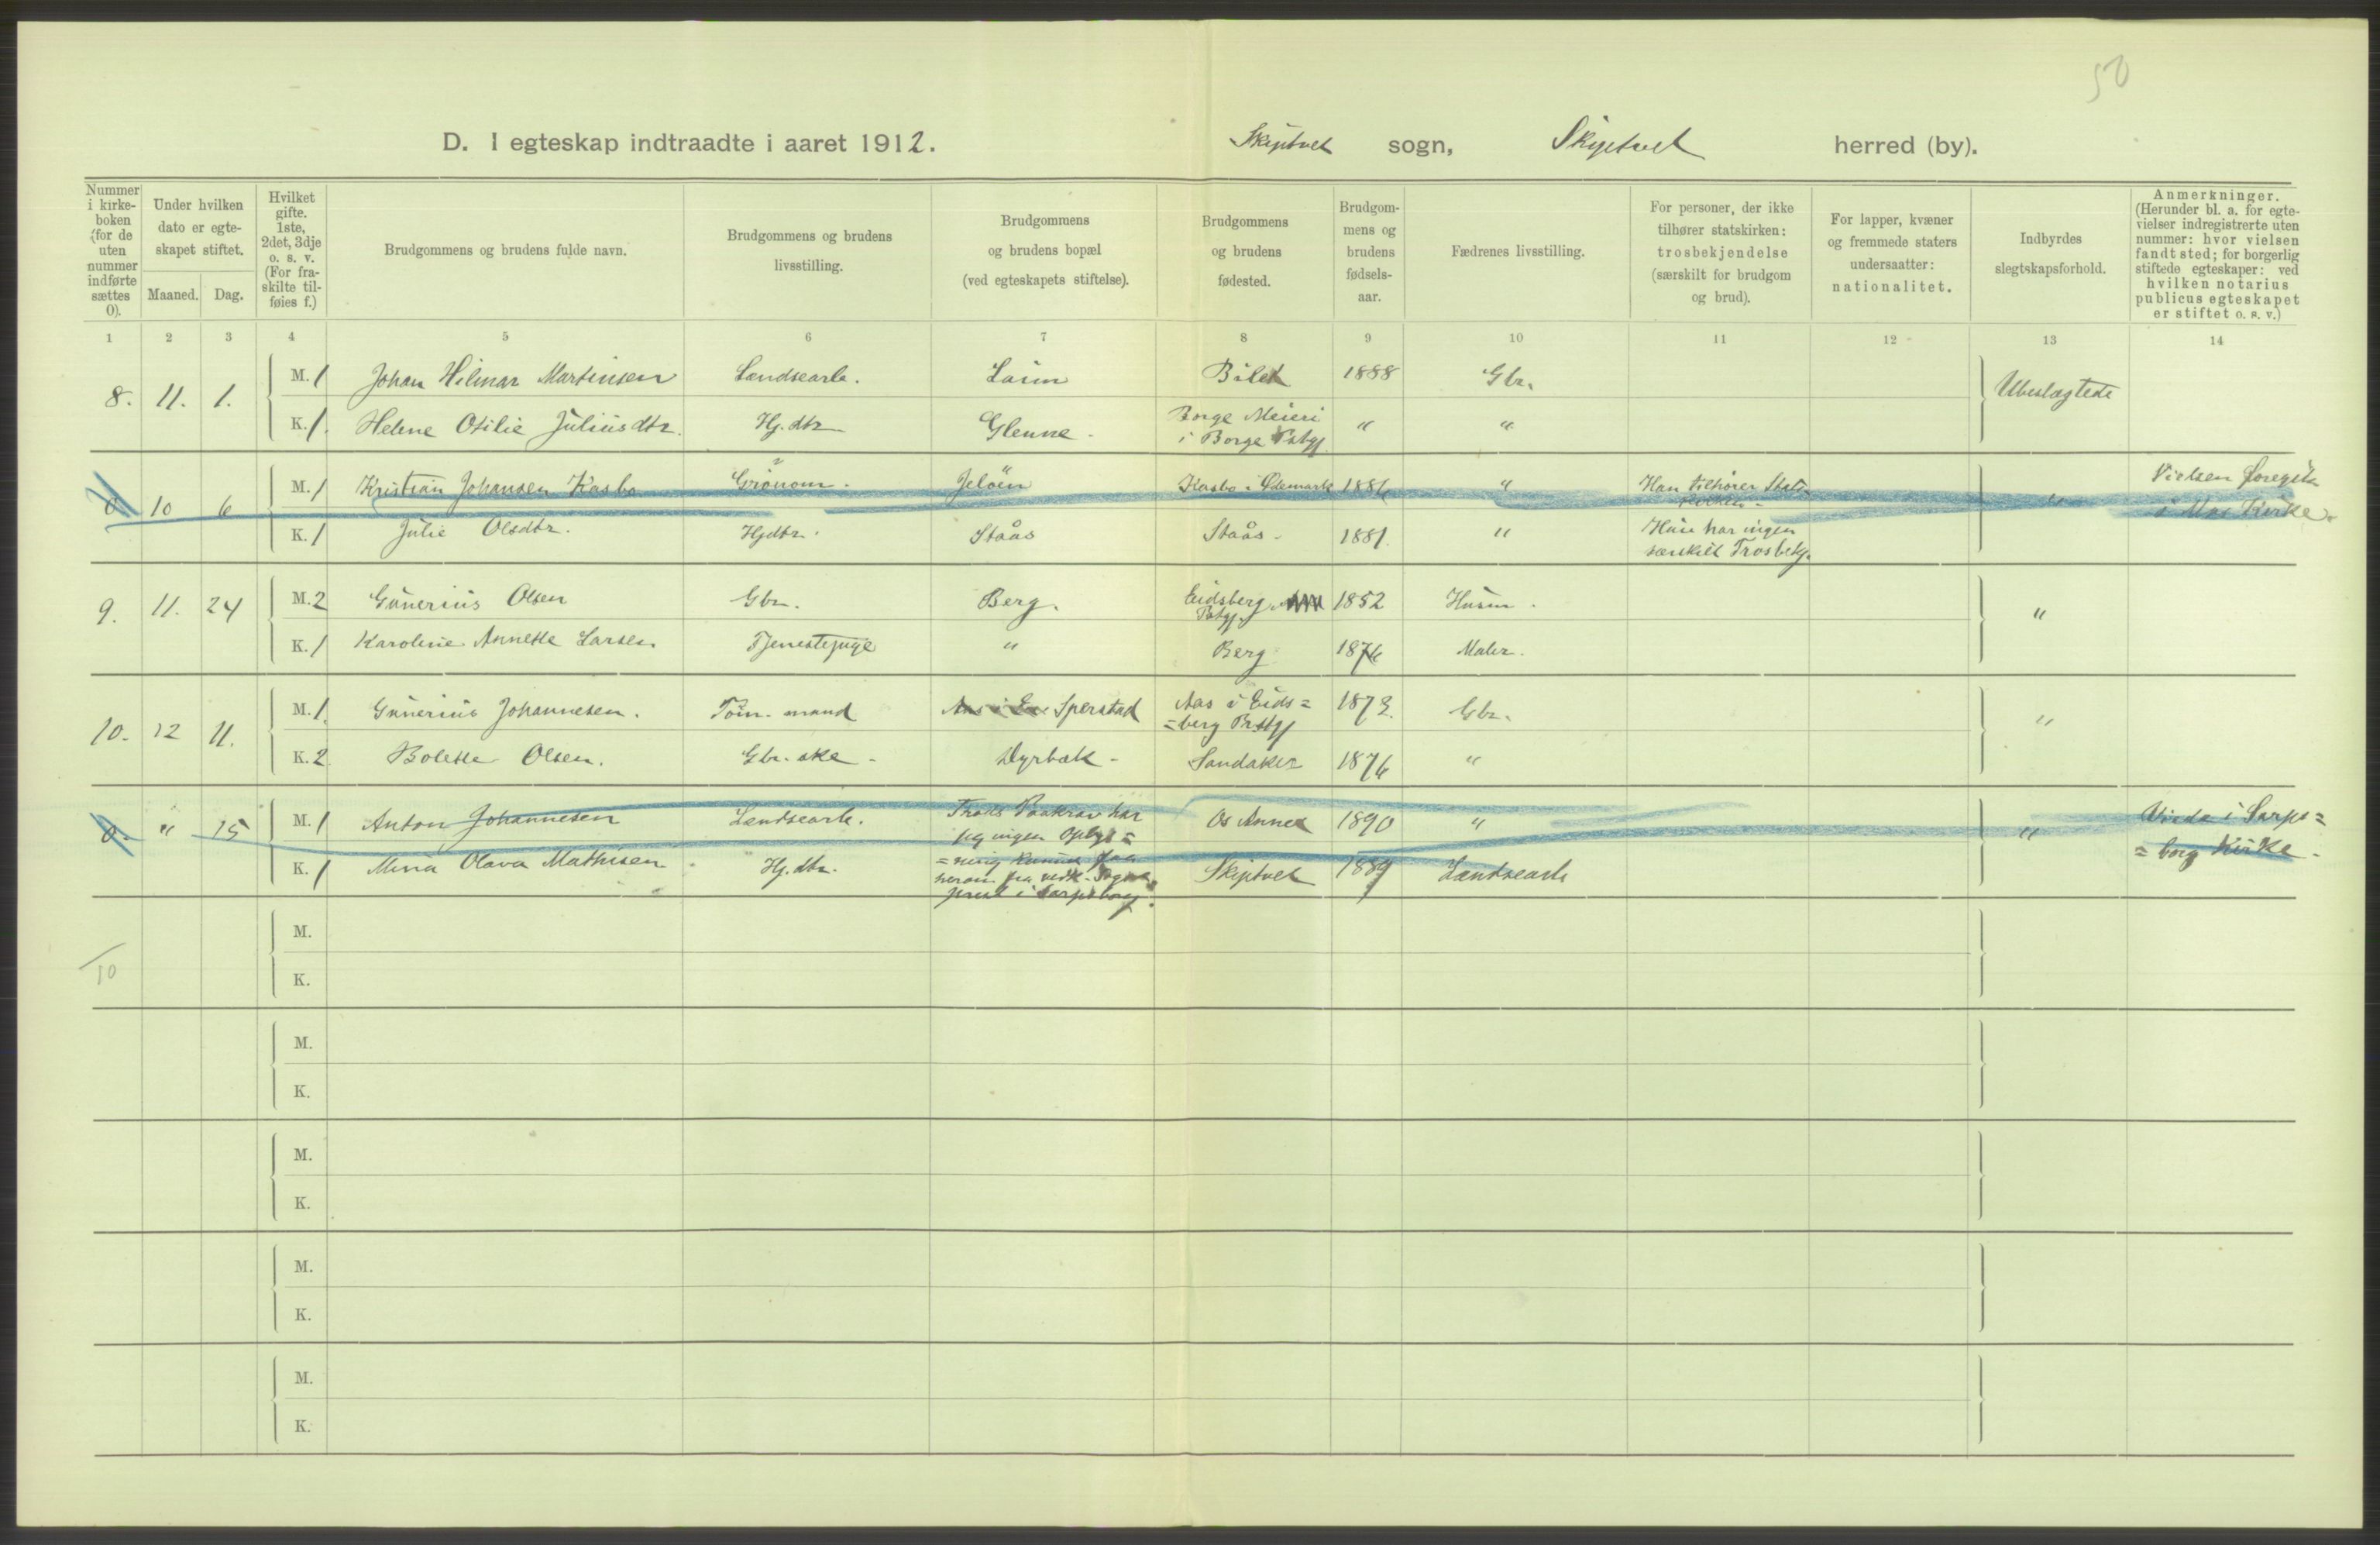 50
D. I egteskap indtraadte i aaret 1912. Skiptvet sogn, Skiptvet herred (by).
Nummer i kirkeboken (for de uten nummer indførte sættes 0).
Under hvilken dato er egteskapet stiftet.
Maaned. Dag.
Hvilket gifte. 1ste, 2det, 3dje o. s. v. (For fraskilte tilføies f.)
Brudgommens og brudens fulde navn.
Brudgommens og brudens livsstilling.
Brudgommens og brudens bopæl (ved egteskapets stiftelse).
Brudgommens og brudens fødested.
Brudgommens og brudens fødselsaar.
Fædrenes livsstilling.
For personer, der ikke tilhører statskirken: trosbekjendelse (særskilt for brudgom og brud).
For lapper, kvæner og fremmede staters undersaatter: nationalitet.
Indbyrdes slegtskapsforhold.
Anmerkninger. (Herunder bl. a. for egtevielser indregistrerte uten nummer: hvor vielsen fandt sted; for borgerlig stiftede egteskaper: ved hvilken notarius publicus egteskapet er stiftet o. s. v.)
1 2 3 4 5 6 7 8 9 10 11 12 13 14
8. 11. 1. M. 1 Johan Hilmar Martinsen Landsearb. Laim Bilet 1888 Gbr. Ubeslægtede
K. 1. Helene Otilie Juliusdtr. Hj. dtr Glenne - Borge Meieri i Borge Pstgj " "
0 10 6 M. 1 Kristian Johansen Kasbo Jeløen Kasbo i Ødemark 1886 " Han tilhører Stats- kirken - " Vielsen foregik i Mos Kirke.
K. 1 Julie Olsdtr. Hjdtr. Staås Staås - 1881 " Hun har ingen særskilt Trosbekj.
9. 11. 24 M. 2 Gunerius Olsen Gbr. Berg. Eidsberg Pstgj. 1852 Husm. "
K. 1 Karoline Annette Larsen Tjenestepige " Berg 1876 Maler.
10. 12 11. M. 1. Gunerius Johannesen. Tøm. mand Sperstad Aas i Eids= =berg Prstgj 1873. Gbr. "
K. 2. Bolette Olsen. Gbr. ske - Dyrbæk - Sandaker 1876 "
0. " 15 M. 1 Anton Johannesen Landsearb. Trods Paakrav har jeg ingen Oply= =sning kunnet faa herom fra vedk. Sogne= prest i Sarpsborg. Os Annex 1890 " " Viede i Sarps= =borg Kirke.
K. 1 Mina Olava Mathisen Hj. dtr. Skiptvet 1889 Landsearb
10
M.
K.
M.
K.
M.
K.
M.
K.
M.
K.